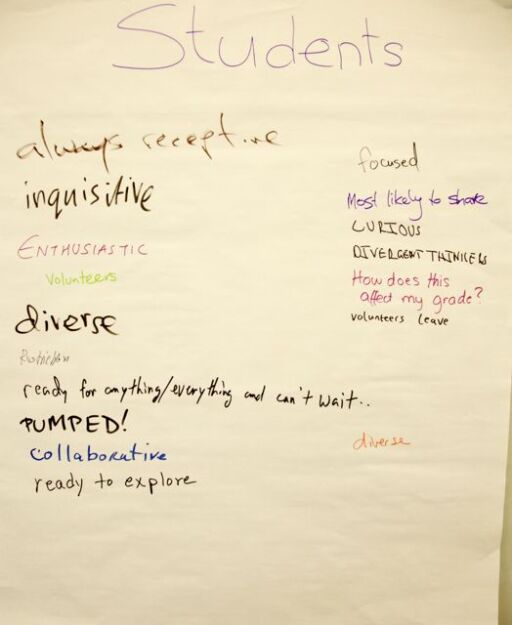 Students
always receptive
inquisitive
ENTHUSIASTIC
volunteers
diverse
ready for anything/everything and can't wait..
PUMPED!
collaborative
ready to explore
focused
Most likely to share
CURIOUS
DIVERGENT THINKERS
How does this
affect my grade?
volunteers leave
diverse